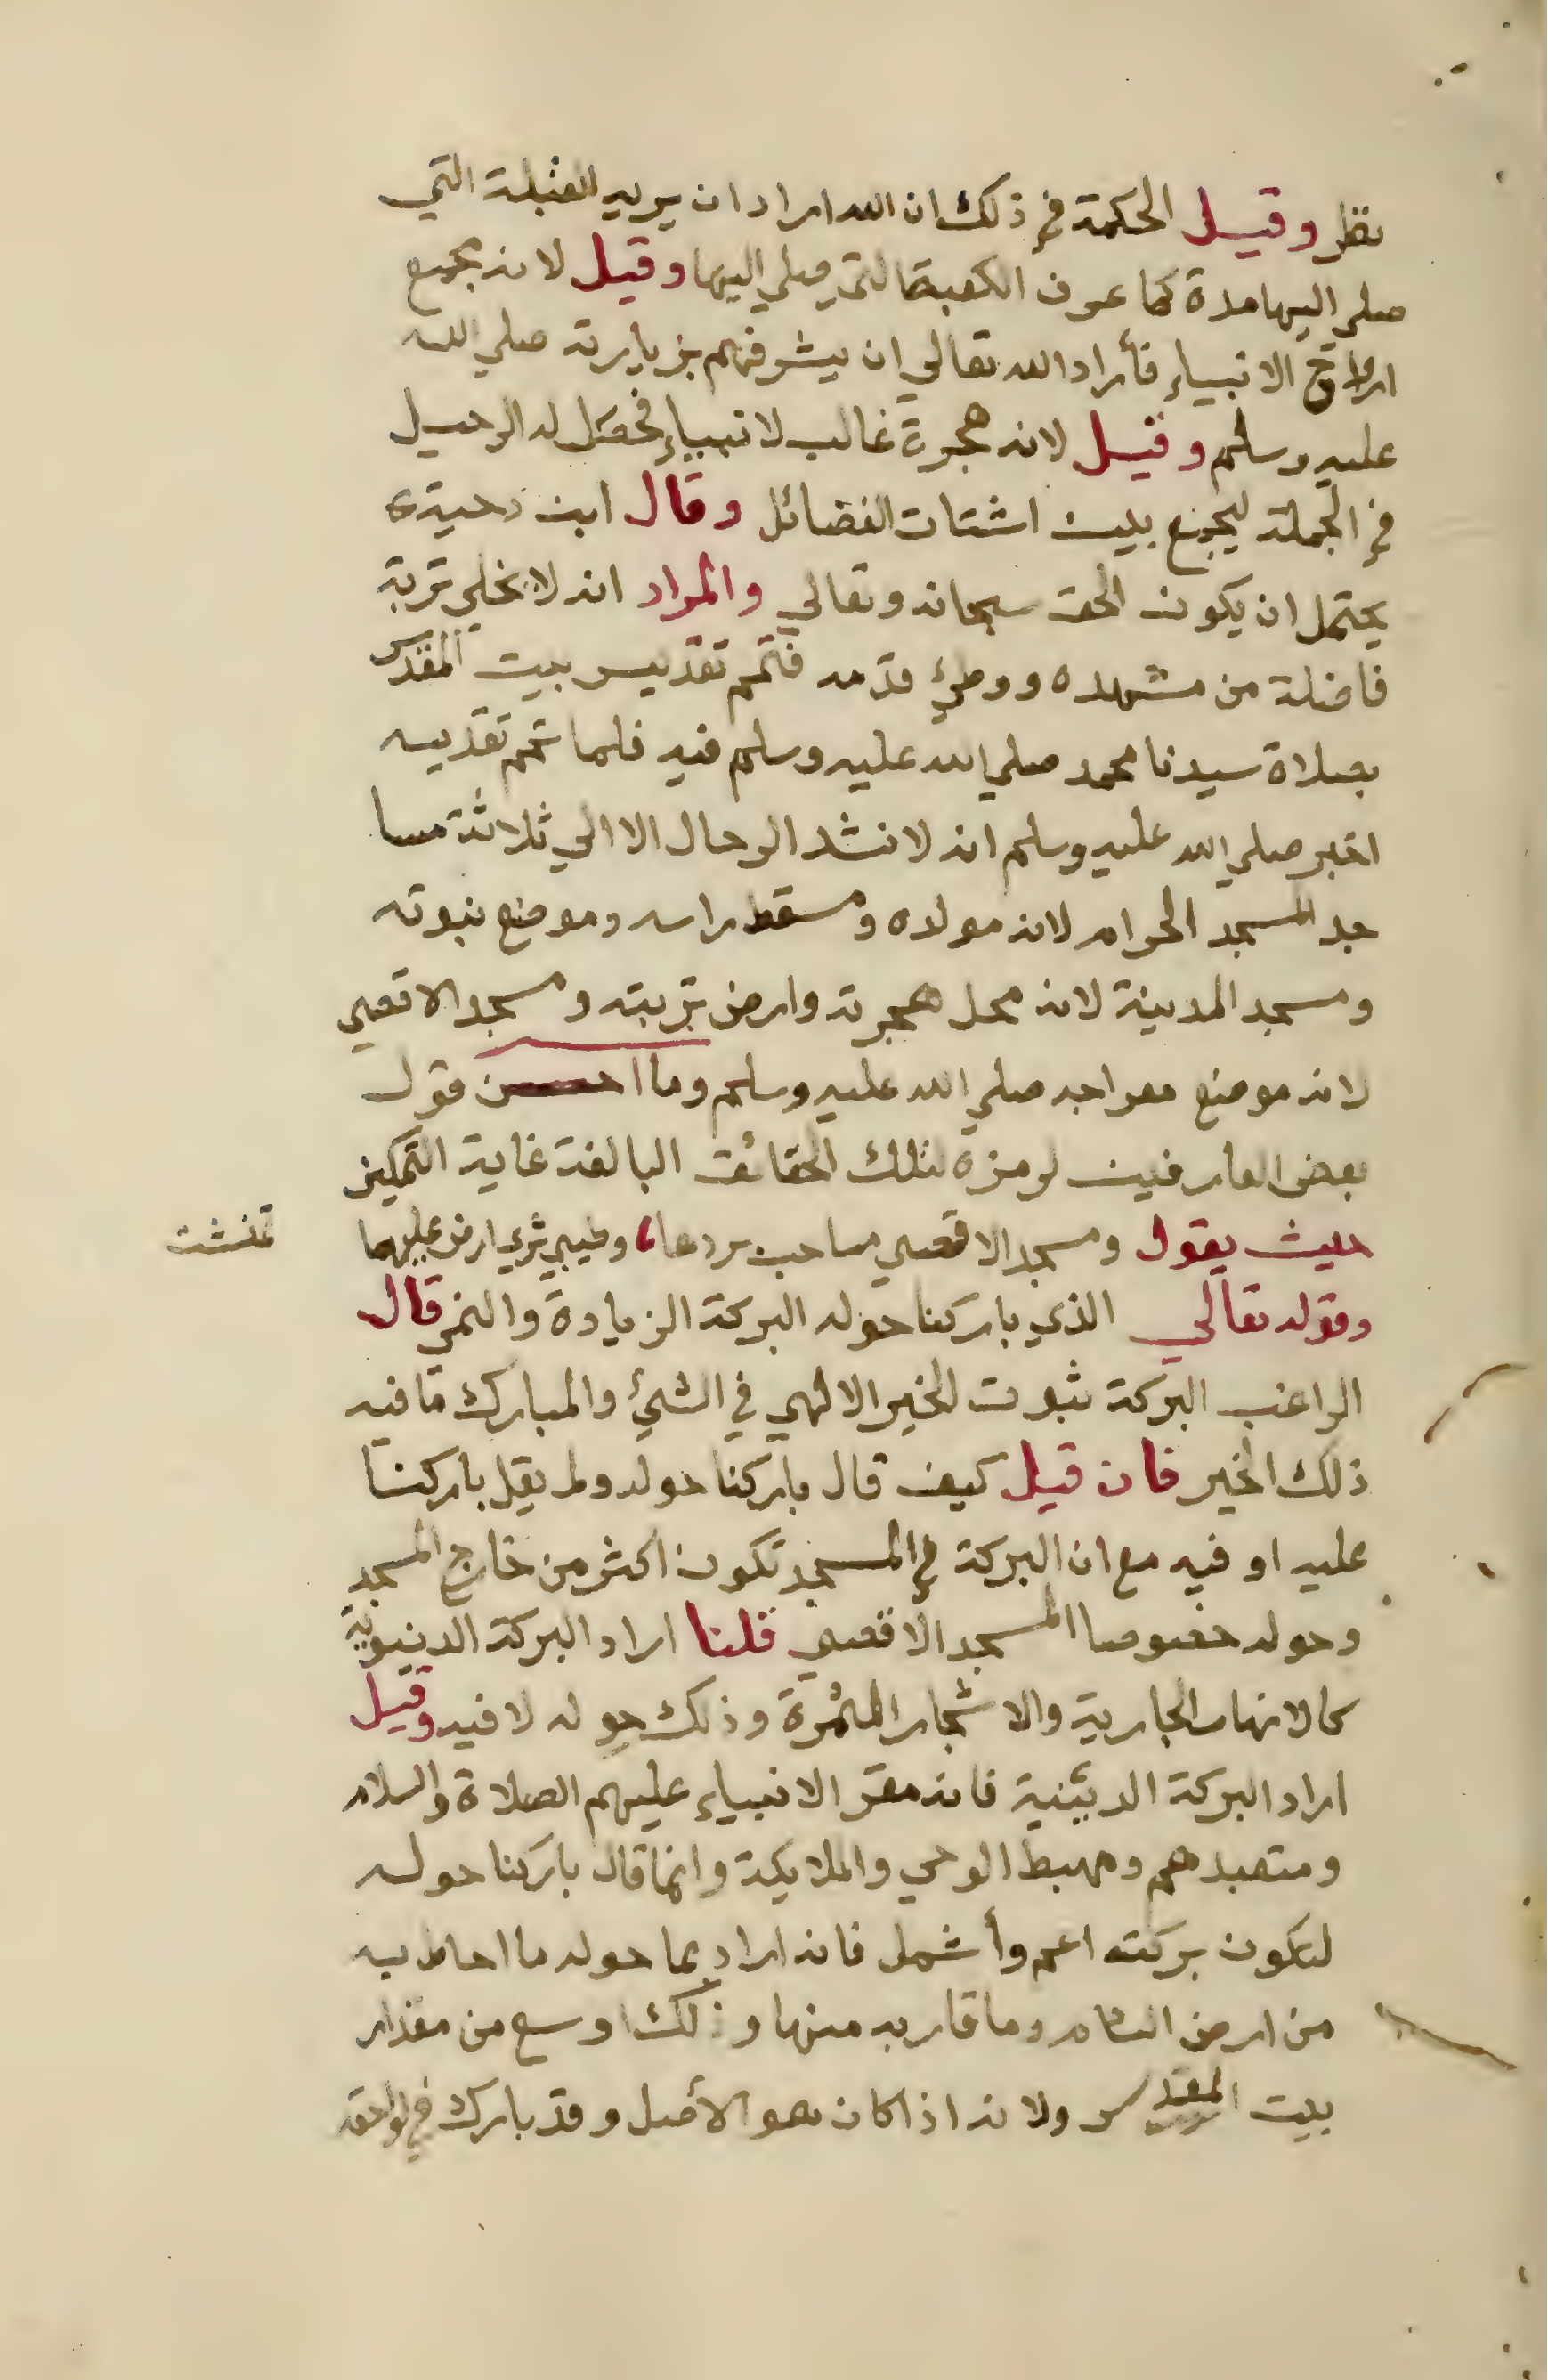 نظر وقيل الحكمة في ذلك ان الله اراد ان يريه القبلة التي
صلي اليها مدة كما عرف الكعبة التي صلي اليها وقيل لانه مجمع
ارواح الانبياء فأراد الله تعالي ان يشرفهم بزيارته صلي الله
عليه وسلم وقيل لانه هجرة غالب لانبياء فحصل له الرحيل
في الجملة ليجمع بين اشتات الفضائل وقال ابن دحية
يحتمل ان يكون الحق سبحانه وتعالي والمراد انه لا يخلي تربة
فاضلة من مشهده ووطئ قدمه فتمم تقديس بيت المقدس
بصلاة سيدنا محمد صلي الله عليه وسلم فيه فلما تمم تقديسه
اخبر صلي الله عليه وسلم انه لا تشد الرحال الا الي ثلاثة مسا
جد المسجد الحرام لانه مولده ومسقط راسه وموضع نبوته
ومسجد المدينة لانه محل هجرته وارض تربته ومسجد الاقصي
لانه موضع معراجه صلي الله عليه وسلم وما احسن قول
بعض العارفين لرمزه لتلك الحقائق البالغة غاية التمكين
حيث يقول ومسجد الاقصي ساحب بردها، وطيبي ثري ارض عليها
تمشت
وقوله تعالي الذي باركنا حوله البركة الزيادة والنمو قال
الراغب البركة ثبوت الخير الالهي في الشئ والمبارك ما فيه
ذلك الخير فان قيل كيف قال باركنا حوله ولم يقل باركنا
عليه او فيه مع ان البركة في المسجد تكون اكثر من خارج المسجد
وحوله خصوصا المسجد الاقصي قلنا اراد البركة الدنيوية
كالانهار الجارية والاشجار المثمرة وذلك حوله لا فيه وقيل
اراد البركة الدينية فانه مقر الانبياء عليهم الصلاة والسلام
ومتعبدهم ومهبط الوحي والملايكة وانما قال باركنا حوله
لتكون بركته اعم وأشمل فانه اراد بما حوله ما احاط به
من ارض الشام وما قاربه منها وذلك اوسع من مقدار
بيت المقدس ولانه اذا كان هو الأصل وقد بارك في لواحقه